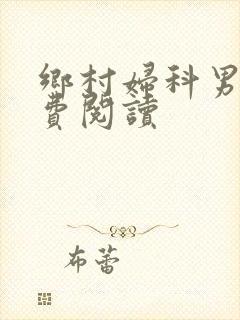 鄉村婦科男
費閱讀
布蕾